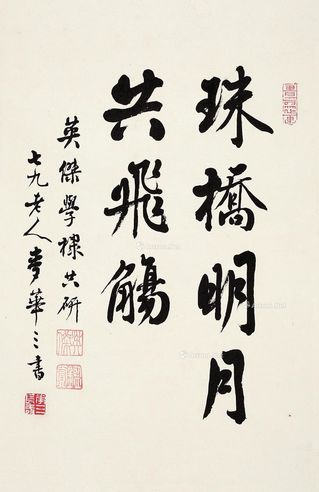 珠橋明月
共飛觴
英傑學棣共研
七九老人麥華三書